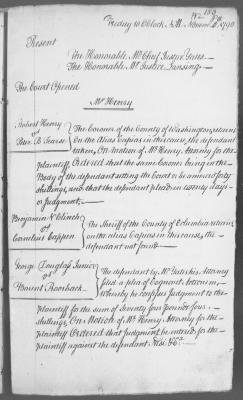 Friday 10 oClock A.M.
1790
Present
The Honorable Mr Chief Justice Yates
The Honorable Mr Justice Lansing
The Court Opened
Mr Henry
Robert Henry
vs
The Coroner of the County of Washington returns
On the Alias Capias in this cause, the defendant
taken, On motion of Mr Henry Attorney for the
plaintiff Ordered that the same Coroner bring in the
Body of the defendant sitting the Court or be amerced forty
shillings, and that the defendant plead in twenty days
or judgment.
Benjamin
vs
The Sheriff of the County of Columbia returns
on the alias Capias in this cause, the
defendant not found
George Douglass Junior
vs
The defendant by Mr Attorney
filed a plea of Cognovit Actionem
whereby he confesses judgment to the
plaintiff for the sum of Seventy four pounds four
shillings. On Motion of Mr Henry Attorney for the
plaintiff Ordered that judgment be entered for the
plaintiff against the defendant